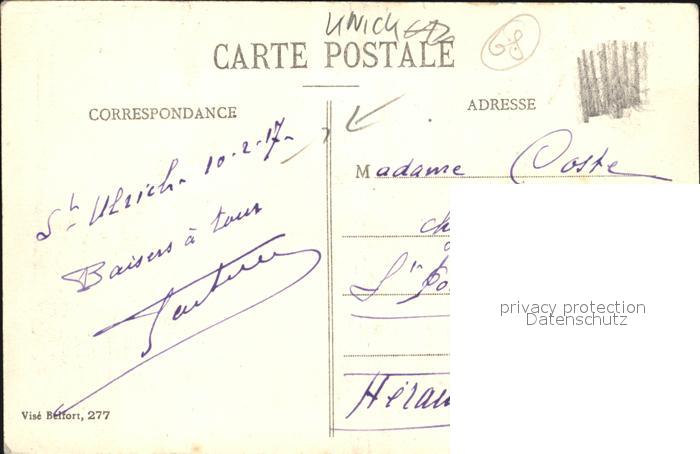 68
CARTE POSTALE
CORRESPONDANCE
ADRESSE
St. Ulrich. 10-2-17-
Baisers à tous
Madame Coste
Hérau
privacy protection
Datenschutz
Visé Belfort, 277